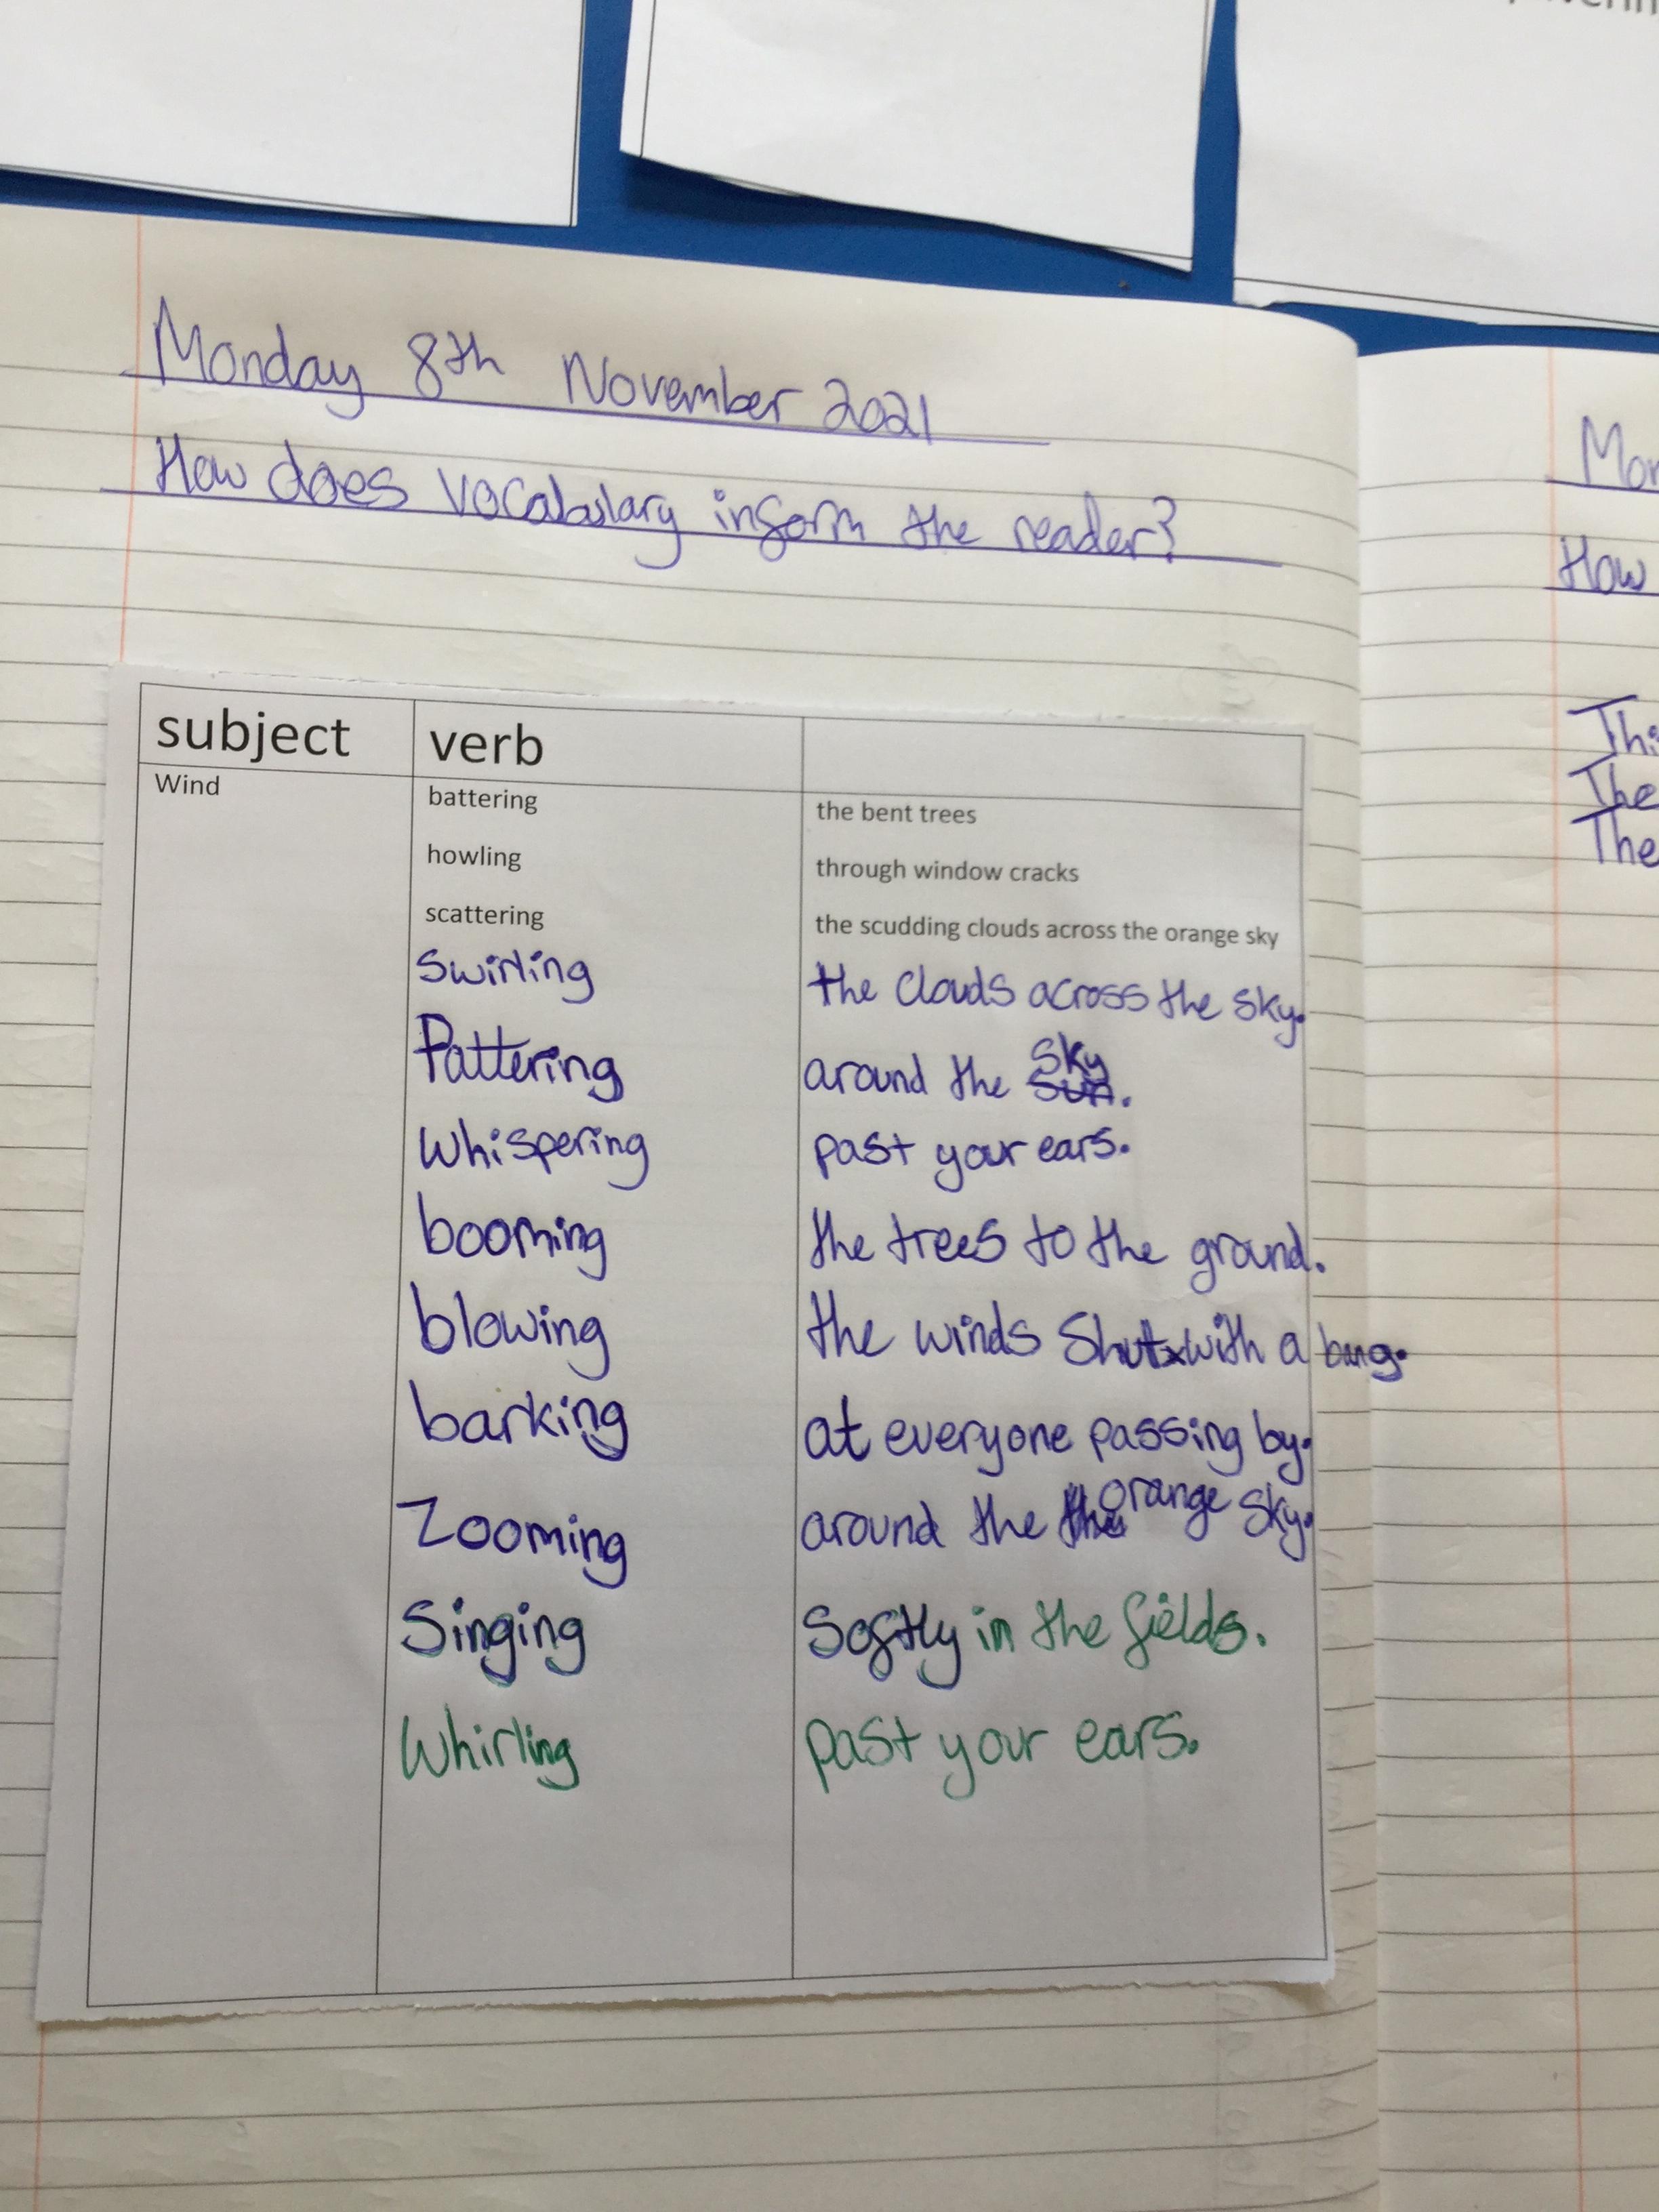 Monday 8th November 2021
How does vocabulary inform the reader?
subject verb
Wind battering the bent trees
howling through window cracks
scattering the scudding clouds across the orange sky
Swirling the clouds across the sky.
Pattering around the sky sun.
Whispering past your ears.
booming the trees to the ground.
blowing the winds Shut with a bang.
barking at everyone passing by.
Zooming around the the orange sky.
Singing Softly in the fields.
Whirling past your ears.
How
The